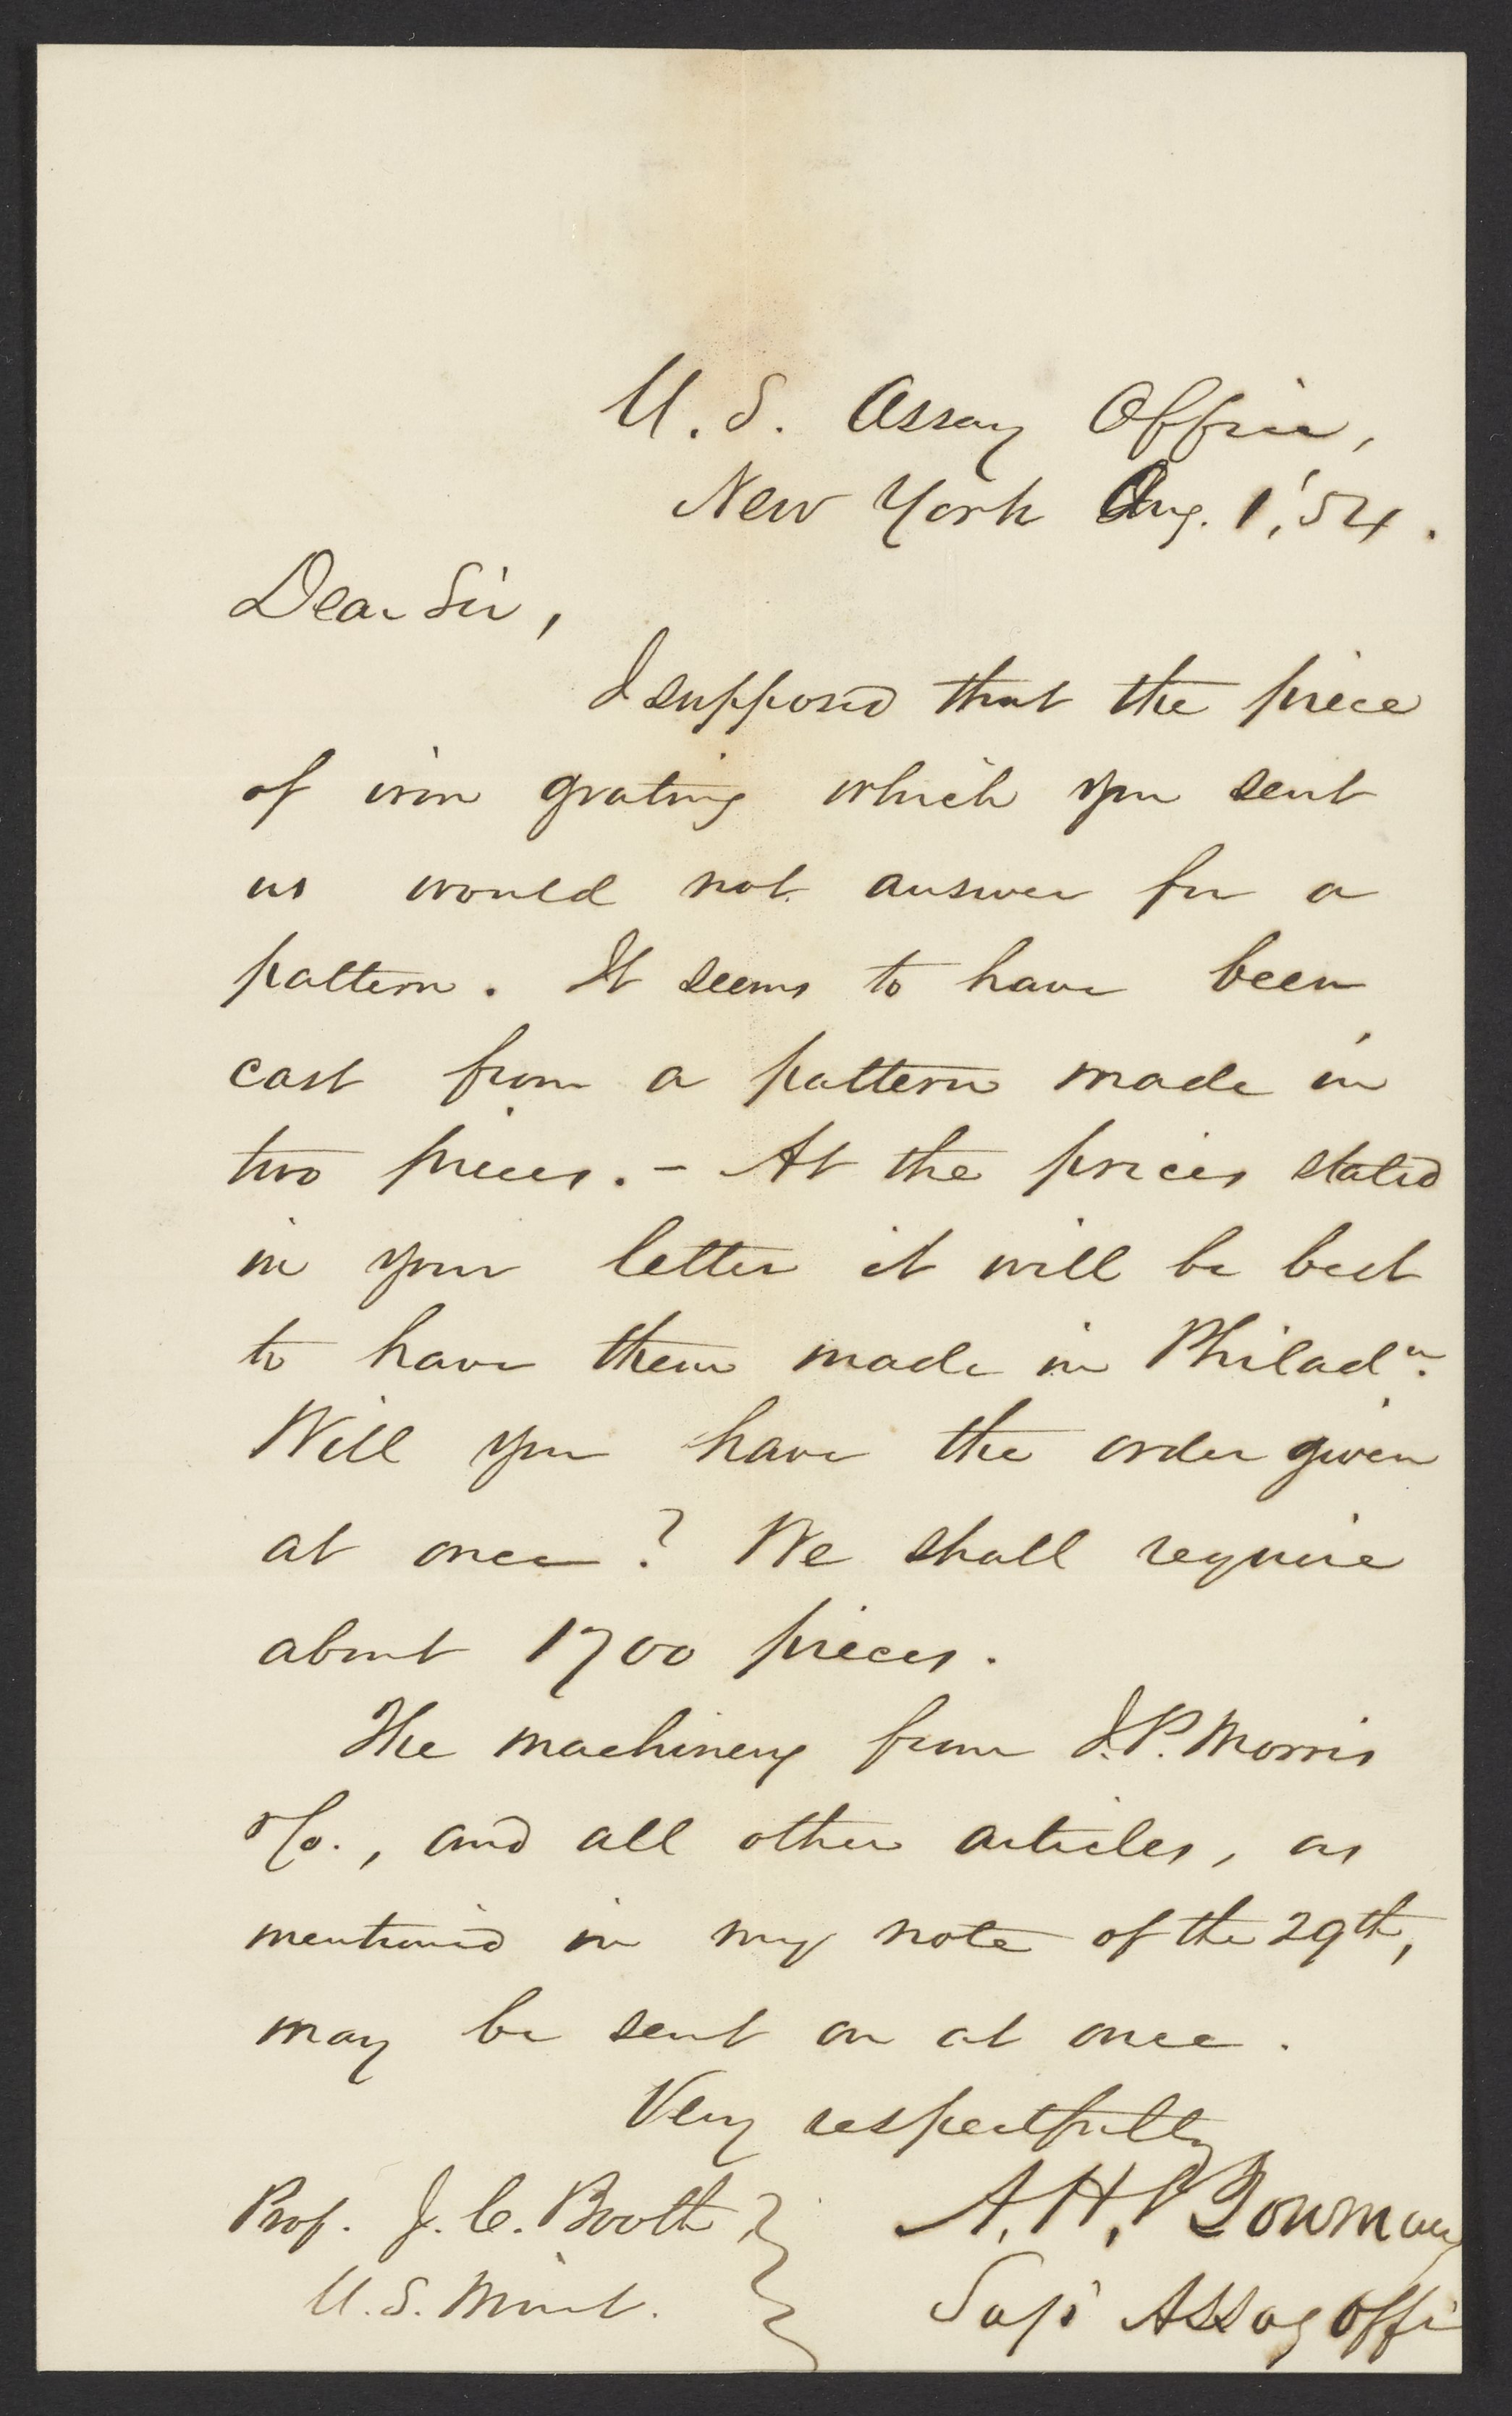 U. S. Assay Office,
New York Aug. 1, '54.
Dear Sir,
I supposed that the piece
of iron grating which you sent
us would not answer for a
pattern. It seems to have been
cast from a pattern made in
two pieces. - At the prices stated
in your letter it will be best
to have them made in Philada.
Will you have the order given
at once? We shall require
about 1700 pieces.
The machinery from I. P. Morris
& Co., and all other articles, as
mentioned in my note of the 29th,
may be sent on at once.
Very respectfully
Prof. J. C. Booth,
U. S. Mint.
A. H. Bowman
Sup't Assay Offi